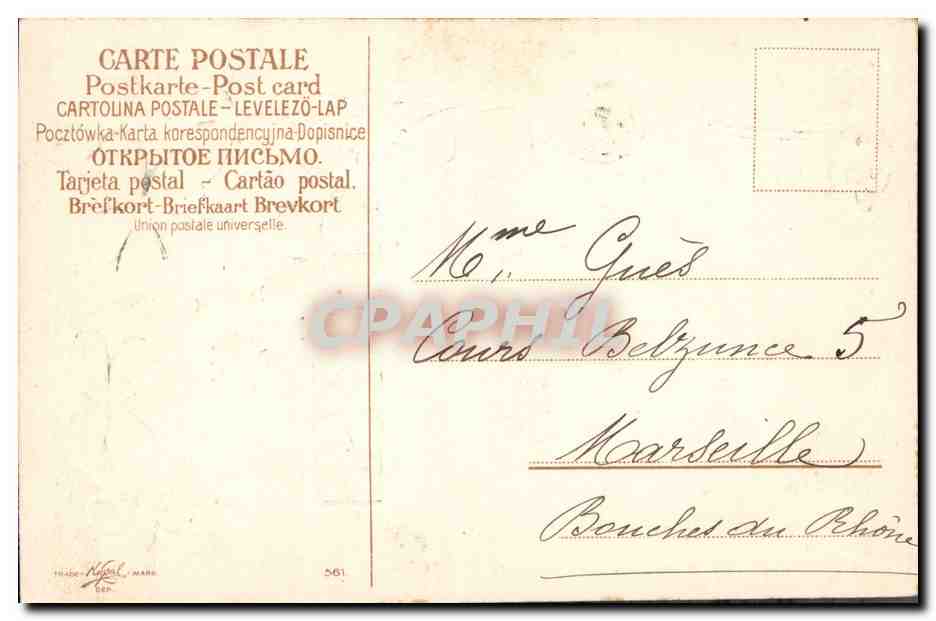 CARTE POSTALE
Postkarte-Post card
CARTOLINA POSTALE-LEVELEZÖ-LAP
Pocztówka-Karta korespondencyjna-Dopisnice
ОТКРЫТОЕ ПИСЬМО.
Tarjeta postal - Cartão postal.
Brefkort-Briefkaart Brevkort
Union postale universelle.
Mme Guès
CPAPHIL
Cours Belzunce 5
Marseille
Bouches du Rhône
TRADE- -MARK
DEP.
561.